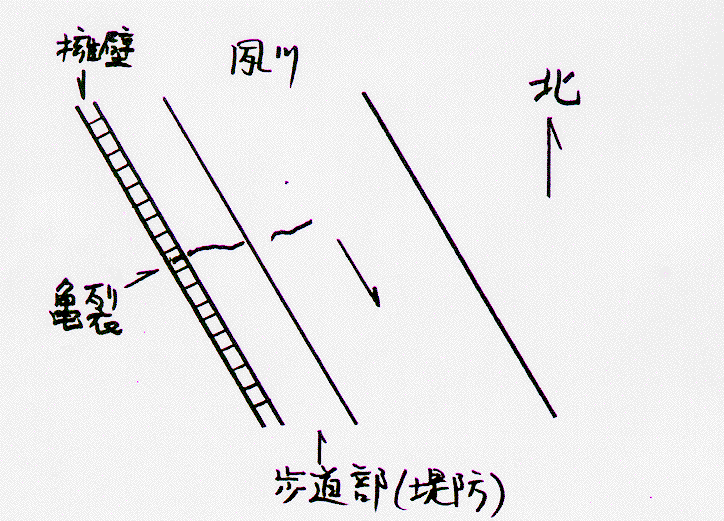 擁壁
夙川
北
亀裂
歩道部(堤防)